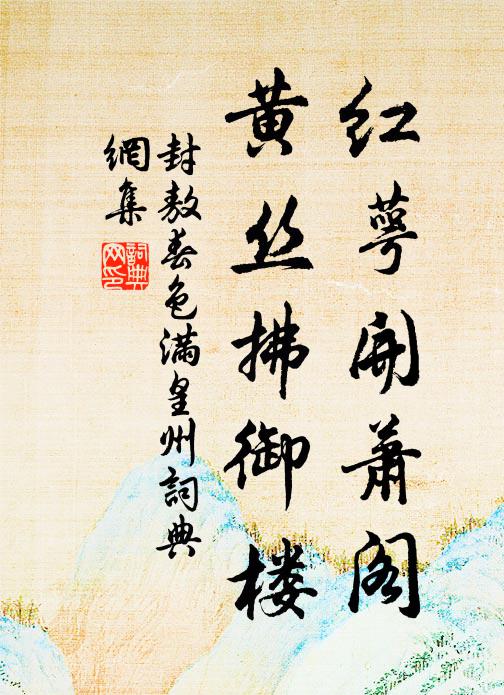 红萼開蕭阁
黄丝拂御楼
封敖春色满皇州詞典
網集
詞典
网印